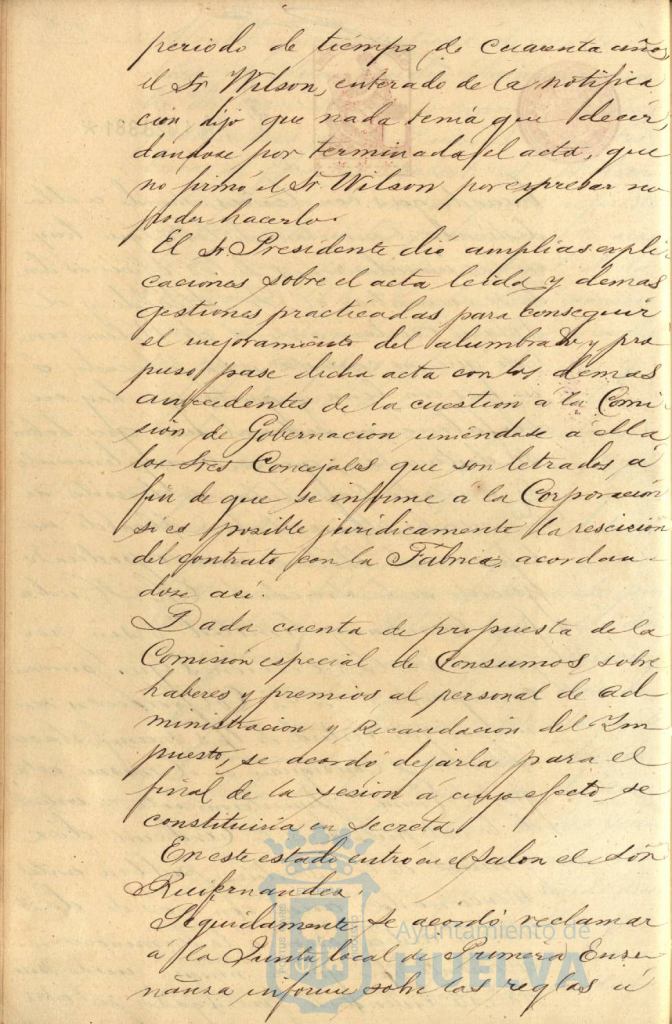 periodo de tiempo de cuarenta años,
el Sr Wilson, enterado de la notifica
cion dijo que nada tenia que decir,
dandose por terminada el acta, que
no firmó el Sr Wilson por espresar no
poder hacerlo.
El Sr Presidente dió amplias expli-
caciones sobre el acta leida y demas
gestiones practicadas para conseguir
el mejoramiento del alumbrado y pro
puso pase dicha acta con los demas
antecedentes de la cuestion á la Comi
sión de Gobernacion uniéndose á ella
los Sres Concejales que son letrados, á
fin de que se informe á la Corporación
si es posible juridicamente la rescición
del contrato con la Fabrica, acordan-
dose así.
Dada cuenta de propuesta de la
Comisión especial de Consumos sobre
haberes y premios al personal de ad-
ministracion y Recaudación del Im
puesto, se acordó dejarla para el
final de la sesión á cuyo efecto se
constituiria en secreta.
En este estado entró en el Salon el Señ
Ruifernandez.
Seguidamente se acordó reclamar
á la Junta local de Primera Ense-
ñanza informe sobre las reglas á
Ayuntamiento de
HUELVA